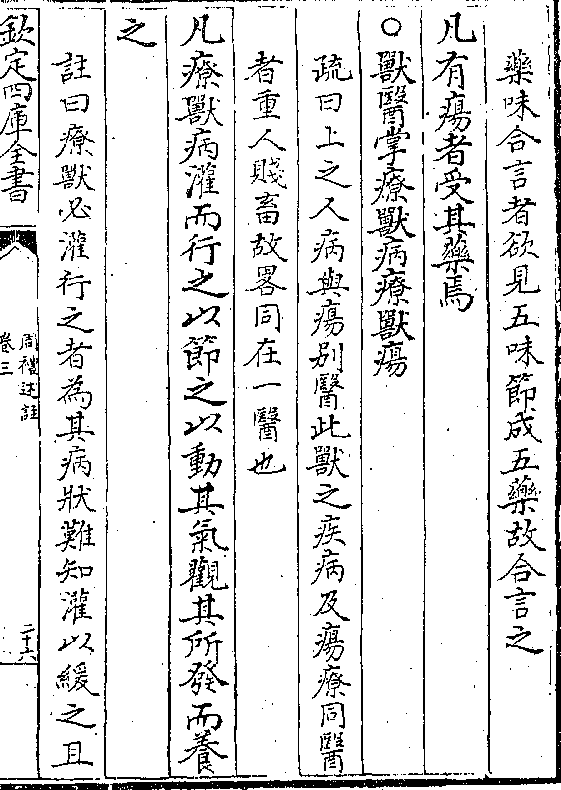 藥味合言者欲見五味節成五藥故合言之
凡有瘍者受其藥焉
○獸醫掌療獸病療獸瘍
疏曰上之人病與瘍別醫此獸之疾病及瘍療同醫
者重人賤畜故畧同在一醫也
凡療獸病灌而行之以節之以動其氣觀其所發而養
之
註曰療獸必灌行之者為其病狀難知灌以緩之且
欽定四庫全書
周禮述註
卷三
二十六